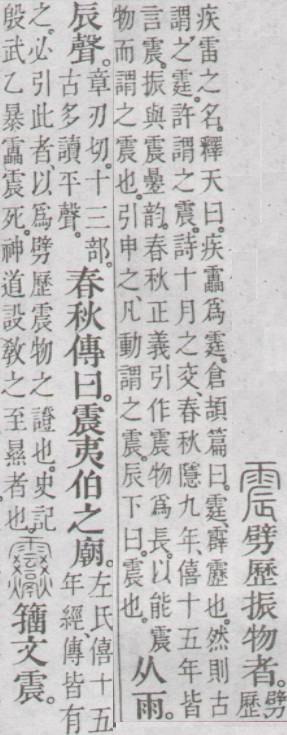 震劈歷振物者。劈歷
疾雷之名。釋天曰。疾靁爲霆。倉頡篇曰。霆、霹靂也。然則古
謂之霆。許謂之震。詩十月之交、春秋隱九年、僖十五年皆
言震。振與震曡韵。春秋正義引作震物爲長。以能震
物而謂之震也。引申之、凡動謂之震。辰下曰。震也。
从雨。
辰聲。
章刃切。十三部。
古多讀平聲。
春秋傳曰。震夷伯之廟。
左氏僖十五
年經、傳皆有
之。必引此者、以爲劈歷震物之證也。史記
殷武乙暴靁震死。神道設敎之至㬎者也。
籒文震。